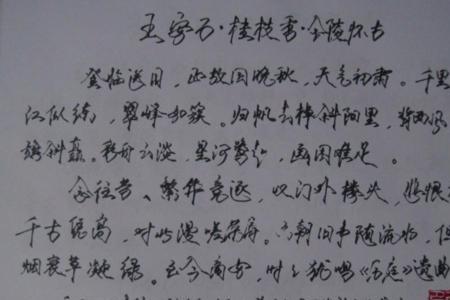 王安石·桂枝香·金陵怀古
登临送目，正故国晚秋，天气初肃。千里
江似练，翠峰如簇。归帆去棹斜阳里，背西风
酒旗斜矗。彩舟云淡，星河鹭起，画图难足。
念往昔、繁华竞逐，叹门外楼头，悲恨
千古凭高，对此漫嗟荣辱。六朝旧事随流水，但
烟衰草凝绿。至今商女，时时犹唱《后庭》遗曲